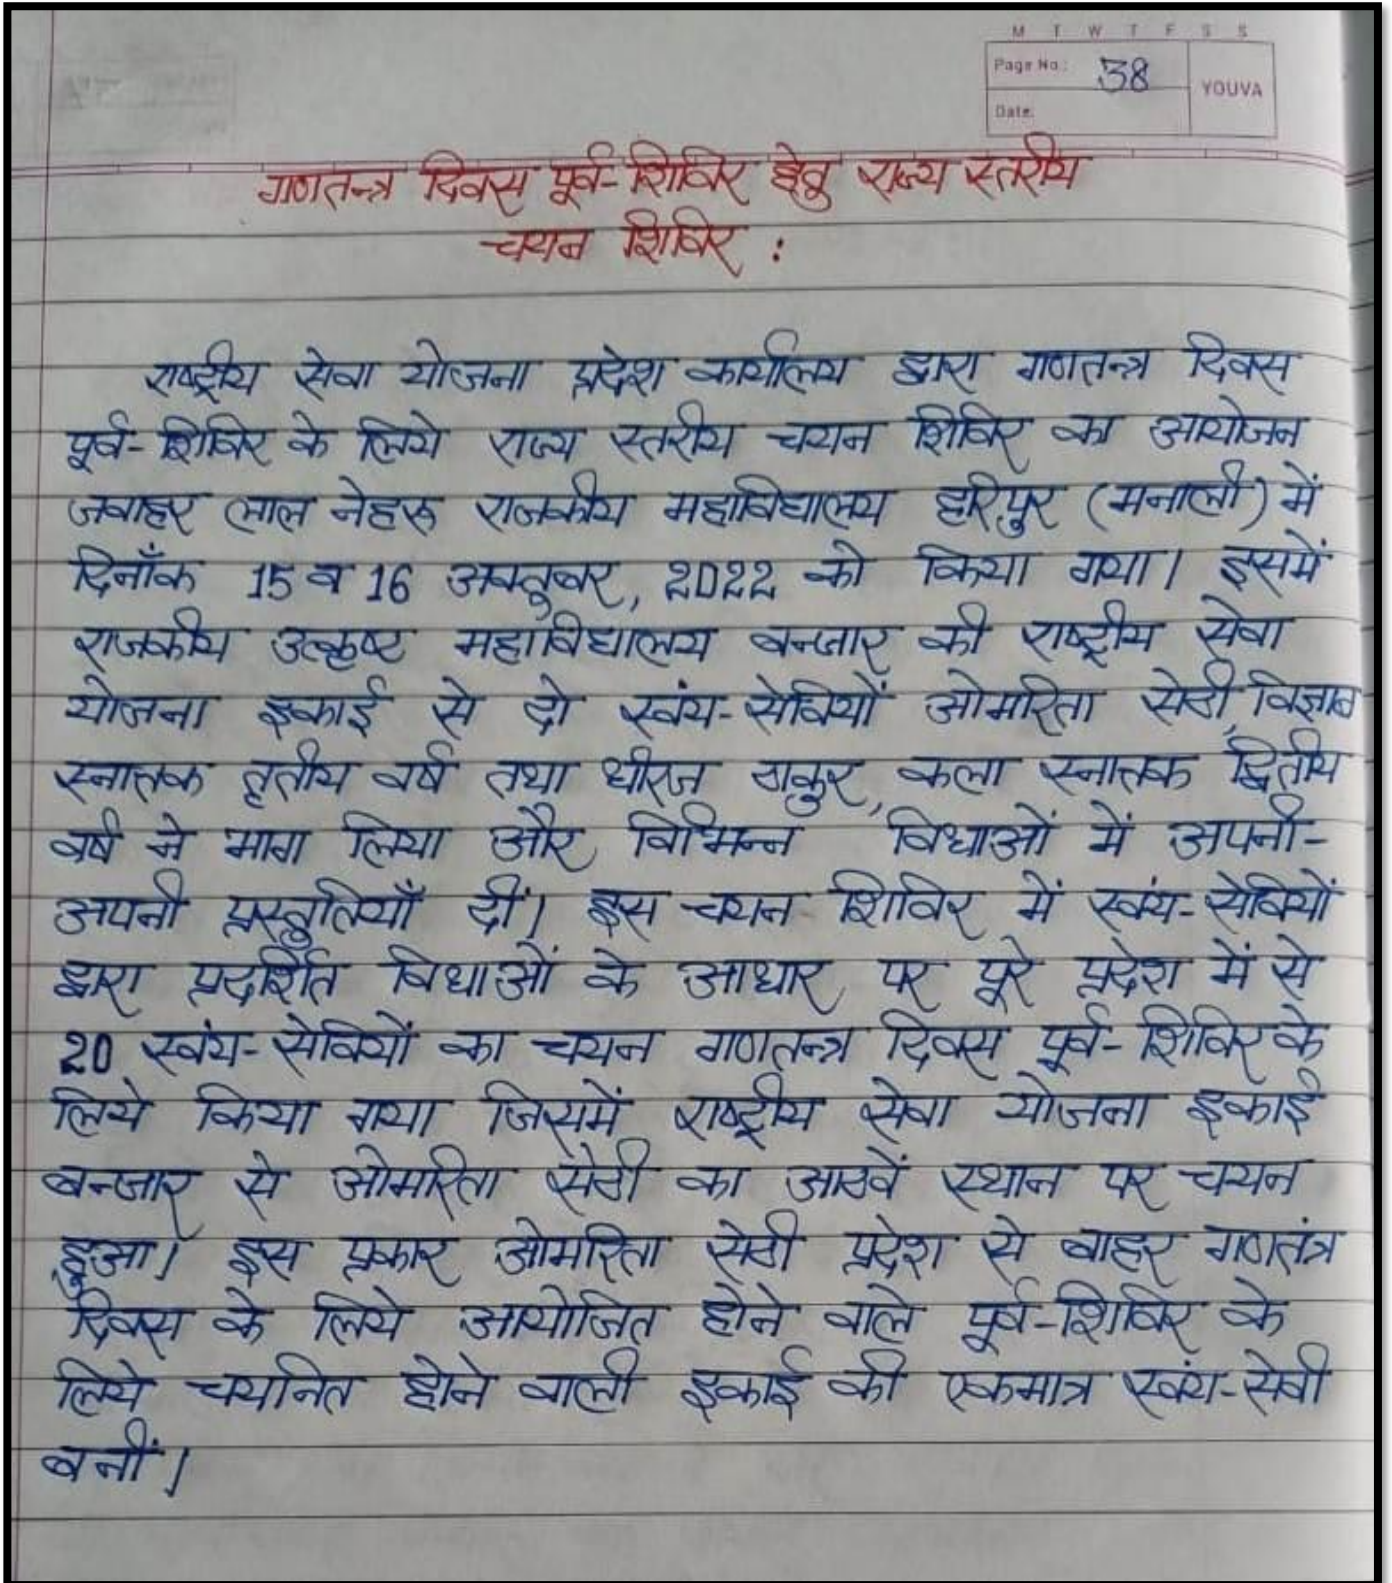 M T W T F S S
Page No.: 38
YOUVA
Date:
गणतन्त्र दिवस पूर्व-शिविर हेतु राज्य स्तरीय
चयन शिविर :
राष्ट्रीय सेवा योजना प्रदेश कार्यालय द्वारा गणतन्त्र दिवस
पूर्व-शिविर के लिये राज्य स्तरीय चयन शिविर का आयोजन
जवाहर लाल नेहरू राजकीय महाविद्यालय हरिपुर (मनाली) में
दिनाँक 15 व 16 अक्तूबर, 2022 को किया गया। इसमें
राजकीय उत्कृष्ट महाविद्यालय बन्जार की राष्ट्रीय सेवा
योजना इकाई से दो स्वंय-सेवियों ओमरिता सेठी, विज्ञान
स्नात्तक तृतीय वर्ष तथा धीरज ठाकुर, कला स्नात्तक द्वितीय
वर्ष ने भाग लिया और विभिन्न विधाओं में अपनी-
अपनी प्रस्तुतियाँ दीं। इस चयन शिविर में स्वंय-सेवियों
द्वारा प्रदर्शित विधाओं के आधार पर पूरे प्रदेश में से
20 स्वंय-सेवियों का चयन गणतन्त्र दिवस पूर्व-शिविर के
लिये किया गया जिसमें राष्ट्रीय सेवा योजना इकाई
बन्जार से ओमरिता सेठी का आठवें स्थान पर चयन
हुआ। इस प्रकार ओमरिता सेठी प्रदेश से बाहर गणतंत्र
दिवस के लिये आयोजित होने वाले पूर्व-शिविर के
लिये चयनित होने वाली इकाई की एकमात्र स्वंय-सेवी
बनीं।